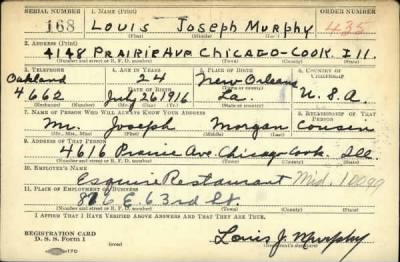 SERIAL NUMBER 1. NAME (Print) ORDER NUMBER
168 LOUIS JOSEPH MURPHY 435
(First) (Middle) (Last)
2. ADDRESS (Print)
4148 PRAIRIE AVE CHICAGO-COOK. Ill.
(Number and street or R. F. D. number) (Town) (County) (State)
3. TELEPHONE 4. AGE IN YEARS 5. PLACE OF BIRTH 6. COUNTRY OF CITIZENSHIP
Oakland 24 New Orleans
DATE OF BIRTH
4662 July 26 1916 La. U.S.A.
(Exchange) (Number) (Mo.) (Day) (Yr.) (State or country)
7. NAME OF PERSON WHO WILL ALWAYS KNOW YOUR ADDRESS 8. RELATIONSHIP OF THAT PERSON
Mr. Joseph Morgan Cousin
(Mr., Mrs., Miss) (First) (Middle) (Last)
9. ADDRESS OF THAT PERSON
4616 Prairie Ave. Chicago Cook. Ill.
(Number and street or R. F. D. number) (Town) (County) (State)
10. EMPLOYER'S NAME
Esquire Restaurant Mid
11. PLACE OF EMPLOYMENT OR BUSINESS
816 E. 63rd St.
(Number and street or R. F. D. number) (Town) (County) (State)
I AFFIRM THAT I HAVE VERIFIED ABOVE ANSWERS AND THAT THEY ARE TRUE.
REGISTRATION CARD
D. S. S. Form 1 Louis J. Murphy
(Registrant's signature)